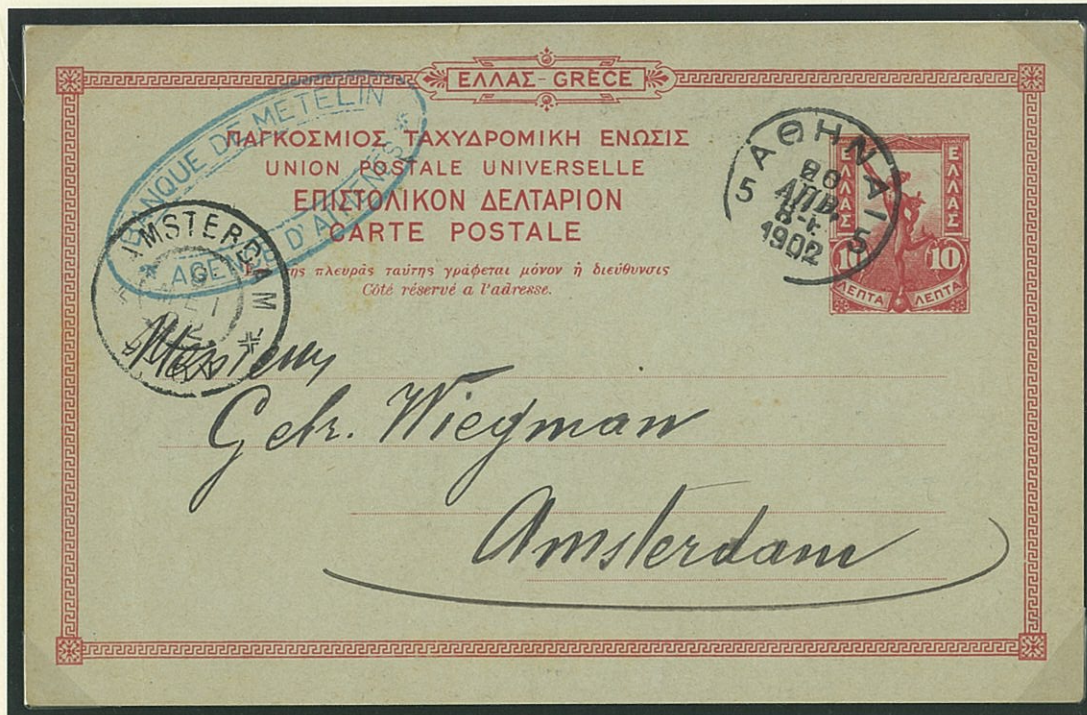 ΕΛΛΑΣ-GRÈCE
BANQUE DE METELIN
AGENCE D'ATHÈNES
ΠΑΓΚΟΣΜΙΟΣ ΤΑΧΥΔΡΟΜΙΚΗ ΕΝΩΣΙΣ
UNION POSTALE UNIVERSELLE
ΕΠΙΣΤΟΛΙΚΟΝ ΔΕΛΤΑΡΙΟΝ
CARTE POSTALE
της πλευρᾶς ταύτης γράφεται μόνον ἡ διεύθυνσις
Côté réservé a l'adresse.
ΑΘΗΝΑΙ
5 5
20
ΑΠΡ.
8-
1902
ΕΛΛΑΣ ΕΛΛΑΣ
10 10
ΛΕΠΤΑ ΛΕΠΤΑ
AMSTERDAM
Messieurs
Gebr. Wiegman
Amsterdam